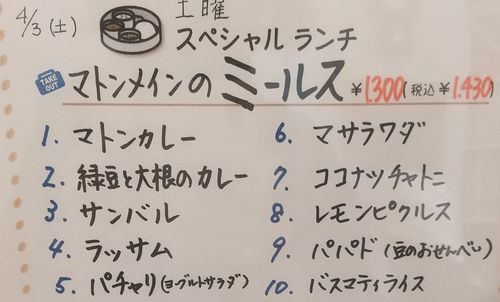 4/3(土)
土曜
スペシャル ランチ
TAKE OUT
マトンメインのミールス ¥1300(税込 ¥1.430)
1. マトンカレー
2. 緑豆と大根のカレー
3. サンバル
4. ラッサム
5. パチャリ(ヨーグルトサラダ)
6. マサラワダ
7. ココナツチャトニ
8. レモンピクルス
9. パパド(豆のおせんべい)
10. バスマティライス